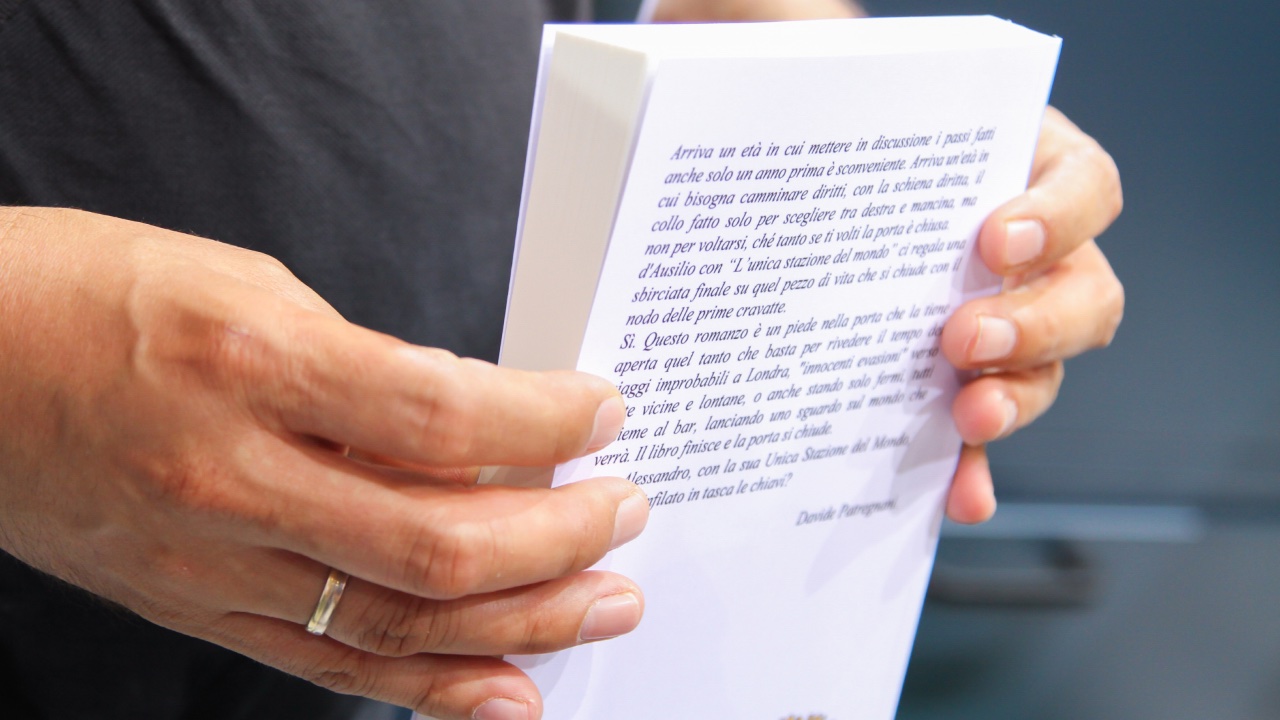 Arriva un età in cui mettere in discussione i passi fatti
anche solo un anno prima è sconveniente. Arriva un'età in
cui bisogna camminare diritti, con la schiena diritta, il
collo fatto solo per scegliere tra destra e mancina, ma
non per voltarsi, ché tanto se ti volti la porta è chiusa.
d'Ausilio con “L'unica stazione del mondo” ci regala una
sbirciata finale su quel pezzo di vita che si chiude con il
nodo delle prime cravatte.
Sì. Questo romanzo è un piede nella porta che la tiene
aperta quel tanto che basta per rivedere il tempo dei
iaggi improbabili a Londra, "innocenti evasioni" verso
te vicine e lontane, o anche stando solo fermi, tutti
ieme al bar, lanciando uno sguardo sul mondo che
verrà. Il libro finisce e la porta si chiude.
Alessandro, con la sua Unica Stazione del Mondo,
nfilato in tasca le chiavi?
Davide Patregnani